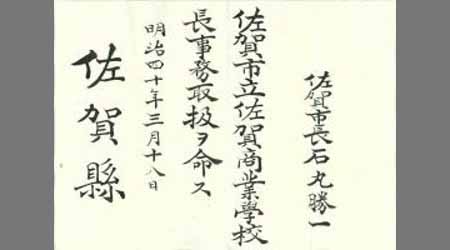 佐賀市長石丸勝一
佐賀市立佐賀商業學校
長事務取扱ヲ命ス
明治四十年三月十八日
佐賀縣